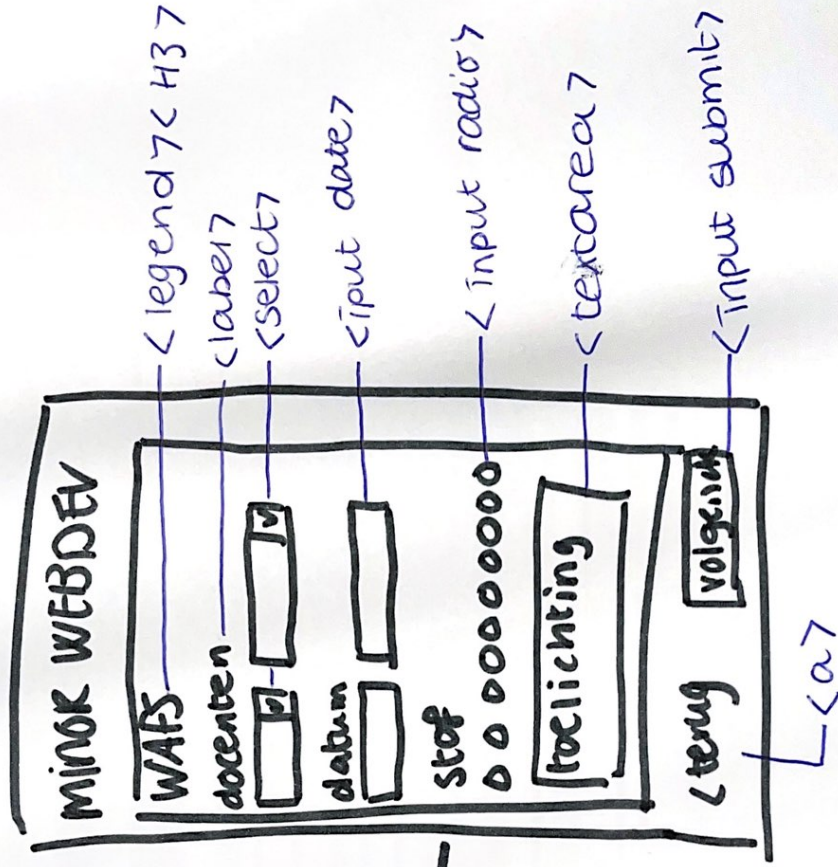 MINOR WEBDEV
WAFS <legend><H3>
docenten <label>
<select>
datum
<iput date>
stof
<input radio>
toelichting <textarea>
<terug
<input submit>
<a>